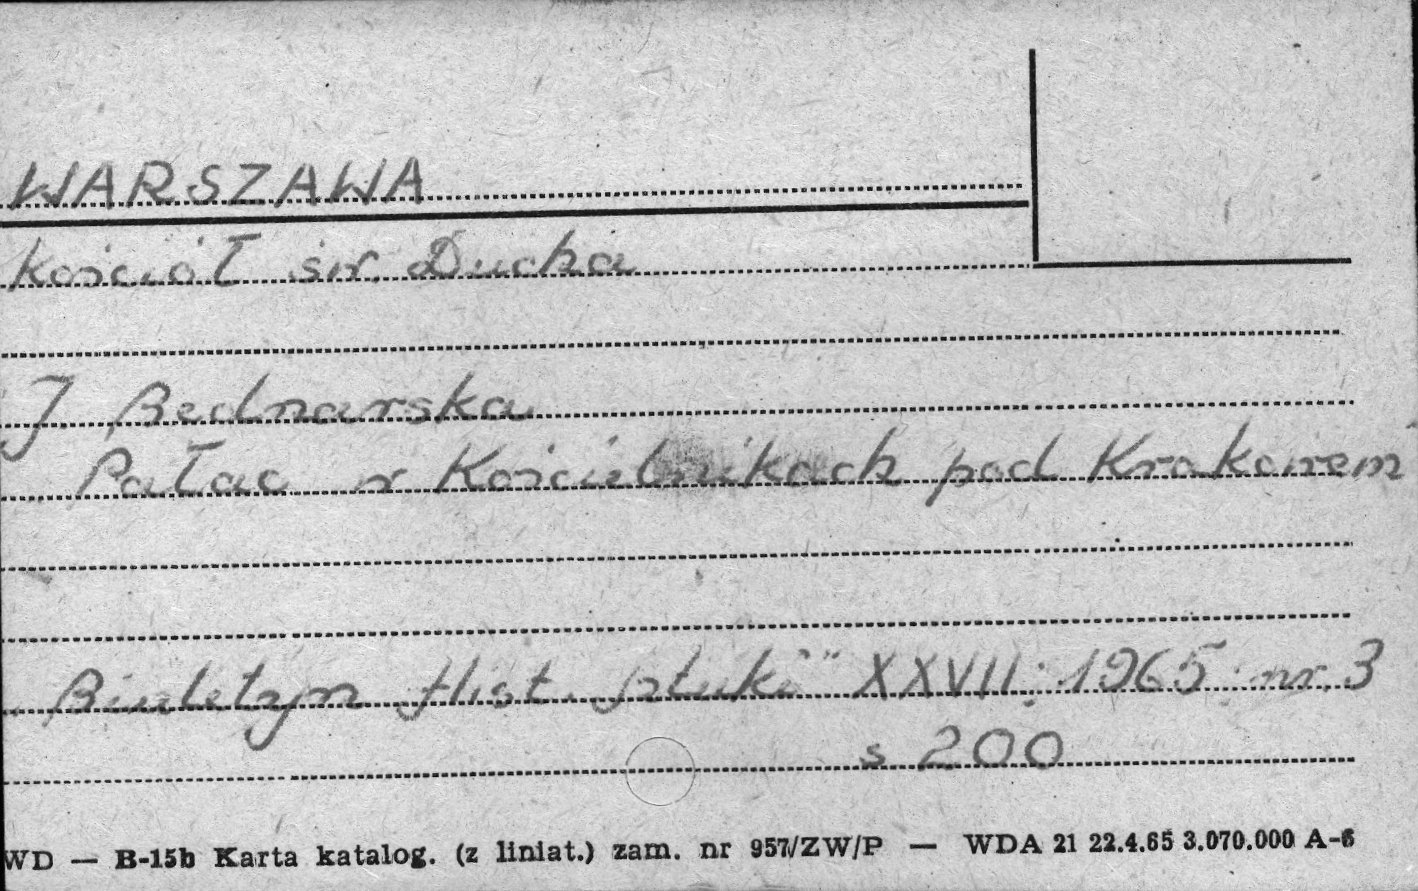 WARSZAWA
Kościół św. Ducha
J. Bednarska
Pałac w Kościelnikach pod Krakowem
Biuletyn Hist. Sztuki" XXVII: 1965 nr. 3
s 200
WD — B-15b Karta katalog. (z liniat.) zam. nr 957/ZW/P — WDA 21 22.4.65 3.070.000 A-6